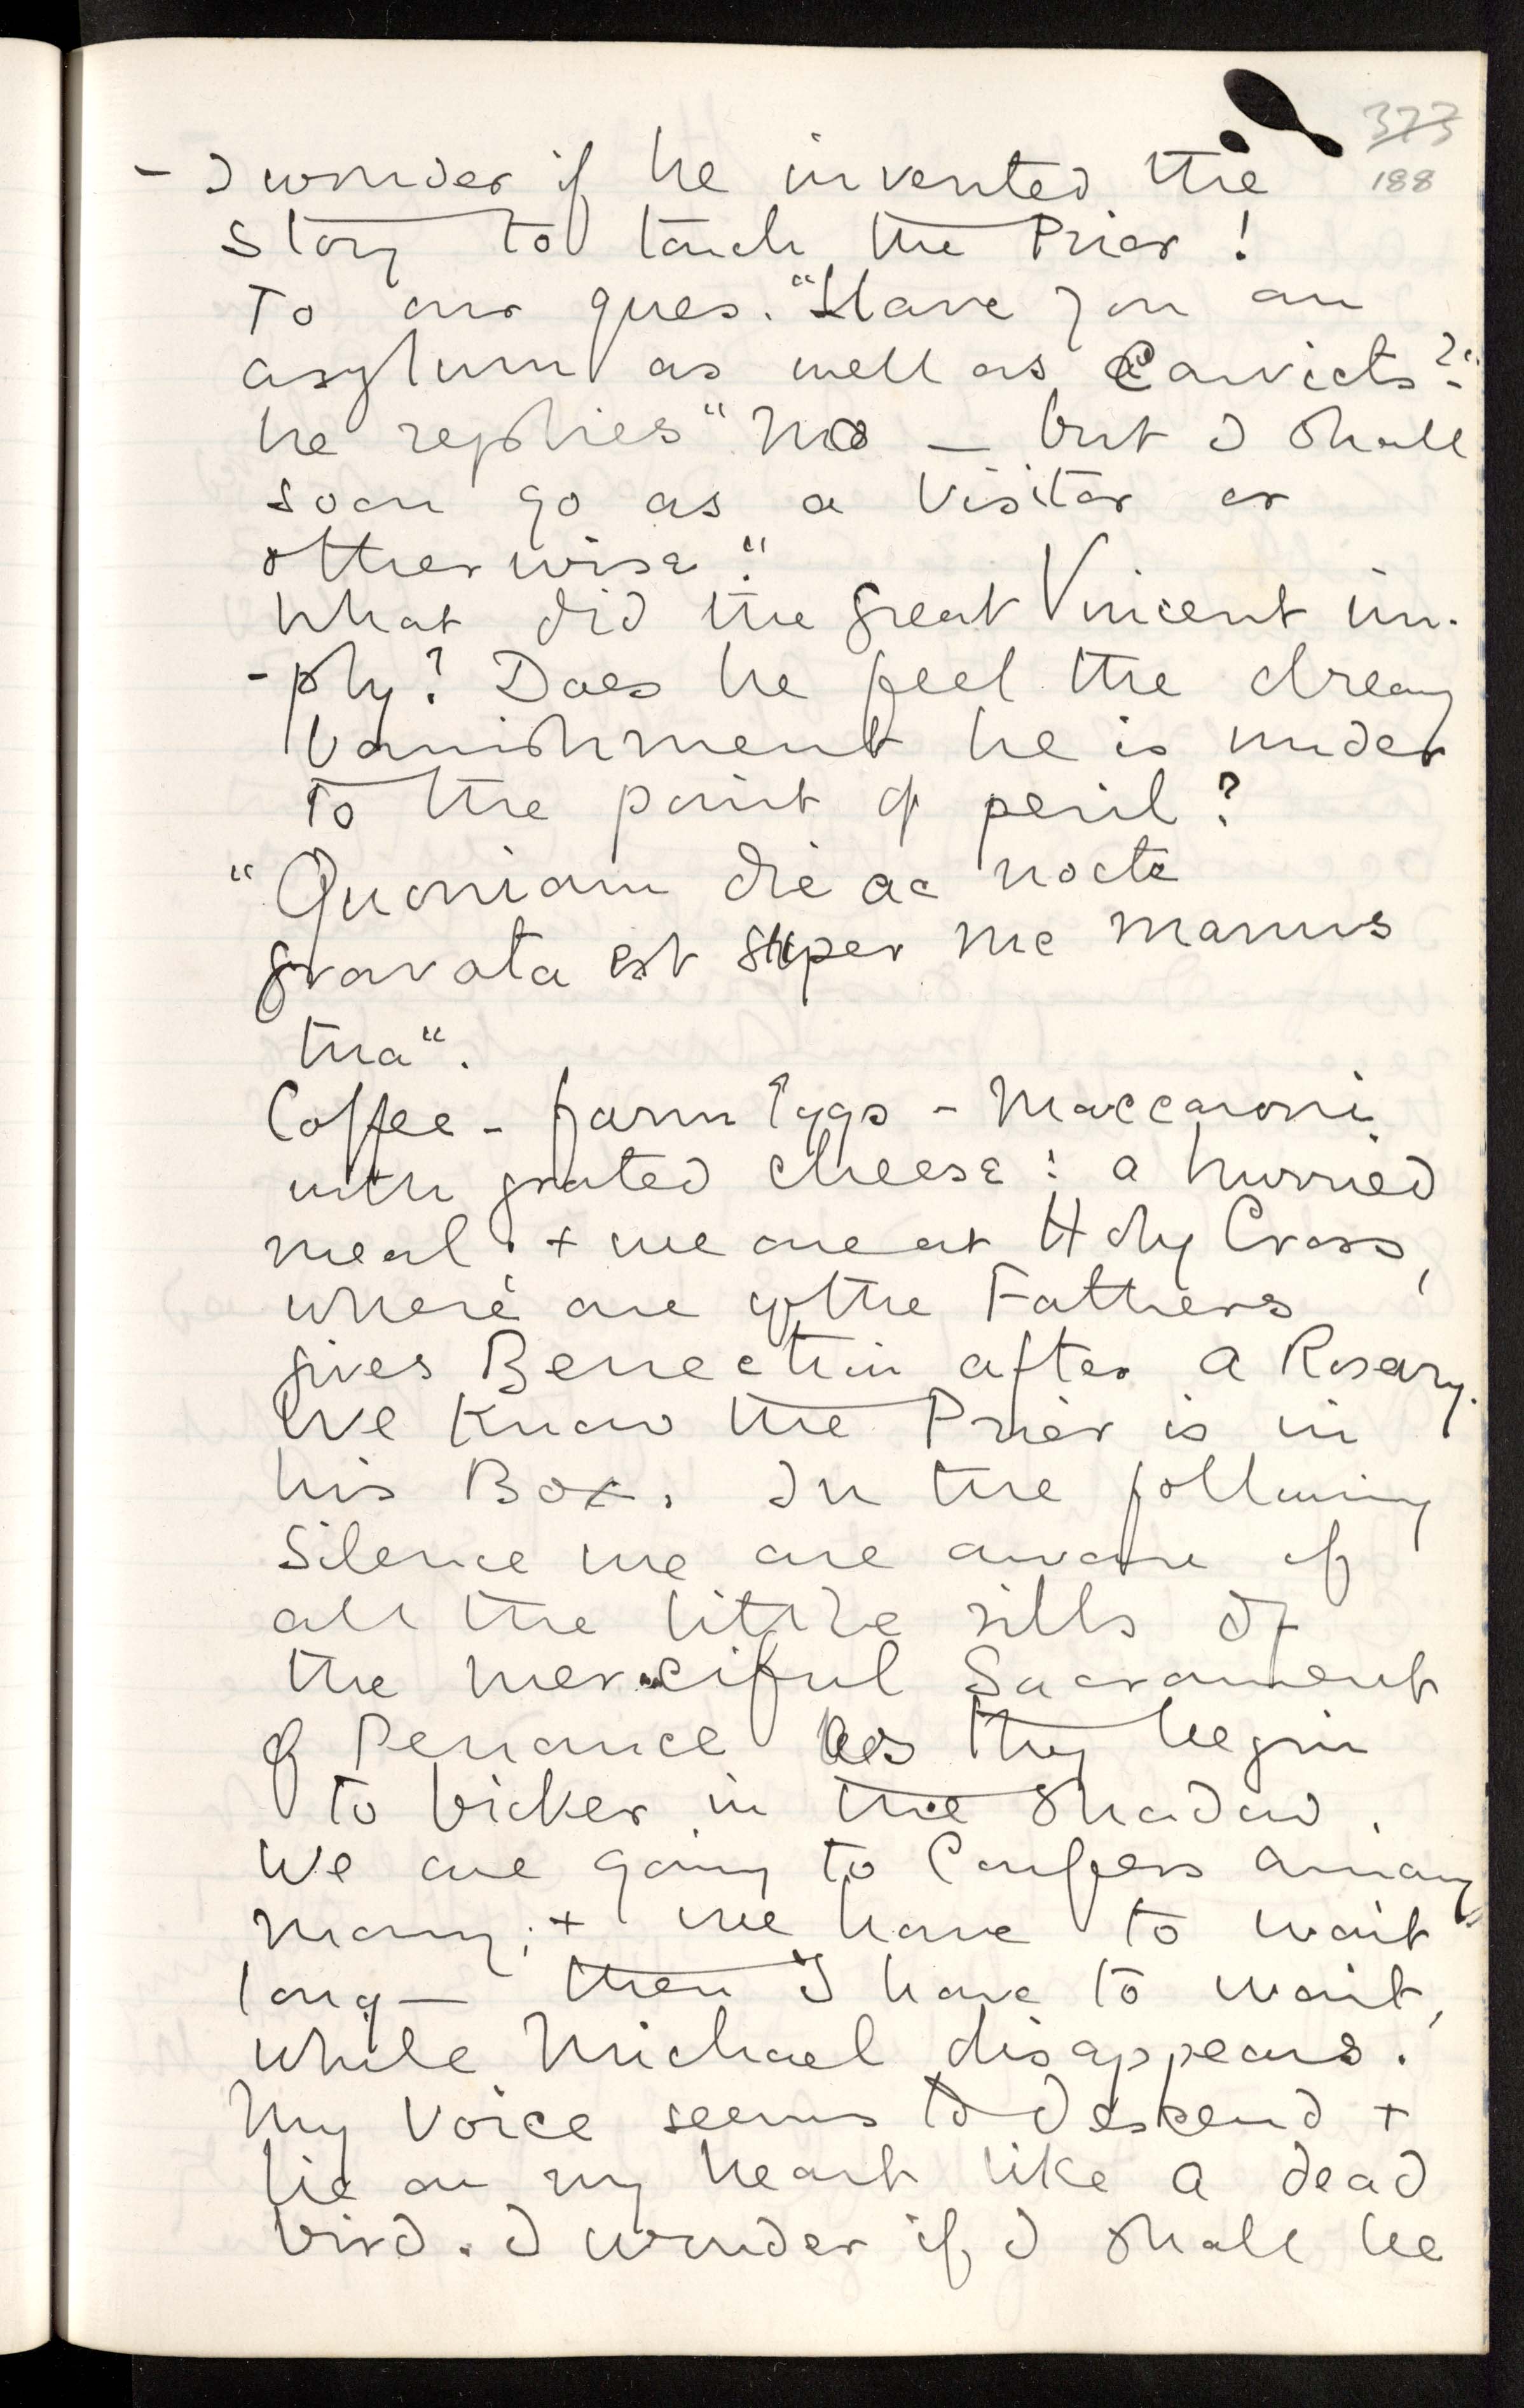 373
188
- I wonder if he invented the
story to touch the Prior!
To our ques. "Have you an
asylum as well as Convicts?"
he replies "No — but I shall
soon go as a Visitor or
otherwise."
What did the great Vincent im-
-ply? Does he feel the dreary
banishment he is under
to the point of peril?
"Quoniam die ac nocte
gravata est super me manus
tua".
Coffee - farm Eggs - Maccaroni
with grated cheese: a hurried
meal. + we are at Holy Cross,
where one of the Fathers
gives Benection after a Rosary.
We know the Prior is in
his Box. In the following
Silence we are aware of
all the little rills of
the merciful Sacrament
of Penance as they begin
to bicker in the shadow.
We are going to Confess among
many; + we have to wait
long — then I have to wait,
while Michael disappears.
My Voice seems to descend +
lie on my heart like a dead
bird. I wonder if I shall be